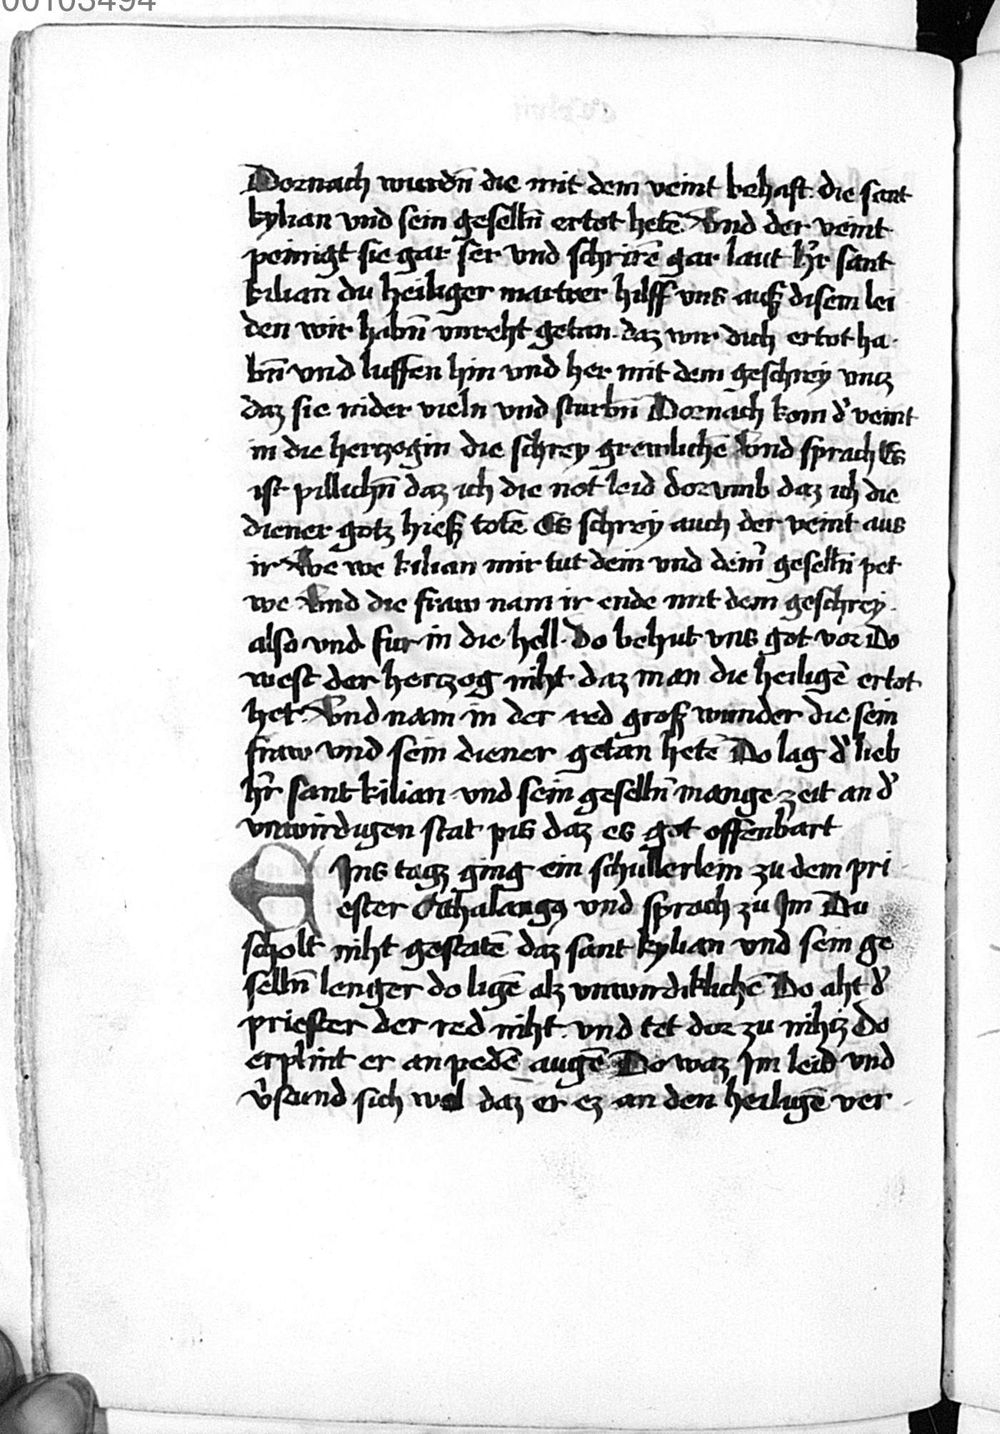 00103494
Dornach wurdn̄ die mit dem veint behaft. die sant
kylian vnd sein geselln̄ ertot hetē. Vnd der veint
peinigt sie gar ser vnd schrirē gar laut h̓r sant
kilian du heiliger martrer hilff vns auß disem lei
den wir habn̄ vnreht getan. daz wir dich ertot ha-
bn̄ vnd luffen hin vnd her mit dem geschrey vncz
daz sie nider vieln vnd sturbn̄ Dornach kom d̓ veint
in die herczogin die schrey grewlichē Vnd sprach Es
ist pillichn̄ daz ich die not leid dorvmb daz ich die
diener gotz hieß totē Es schrey auch der veint aus
ir We we kilian mir tut dein vnd dein̓ geselln̄ pet
we Vnd die fraw nam ir ende mit dem geschrey.
also vnd fur in die hell. do behut vns got vor Do
west der herczog niht daz man die heiligē ertot
het. Vnd nam in der red groß wunder die sein
fraw vnd sein diener getan hetē Do lag d̓ lieb
h̓r sant kilian vnd sein geselln̄ mange zeit an d̓
vnwirdigen stat pis daz es got offenbart
EIns tagz ging ein schullerlein zu dem pri
ester Atthalangꝰ vnd sprach zu Im Du
scholt niht gestatē daz sant kylian vnd sein ge
selln̄ lenger do ligē alz vnwirdiklichē Do aht d̓
priester der red niht. vnd tet dor zu nihcz Do
erplint er an pedē augē Do waz Im leid vnd
v̓stund sich wol daz er ez an den heiligē ver